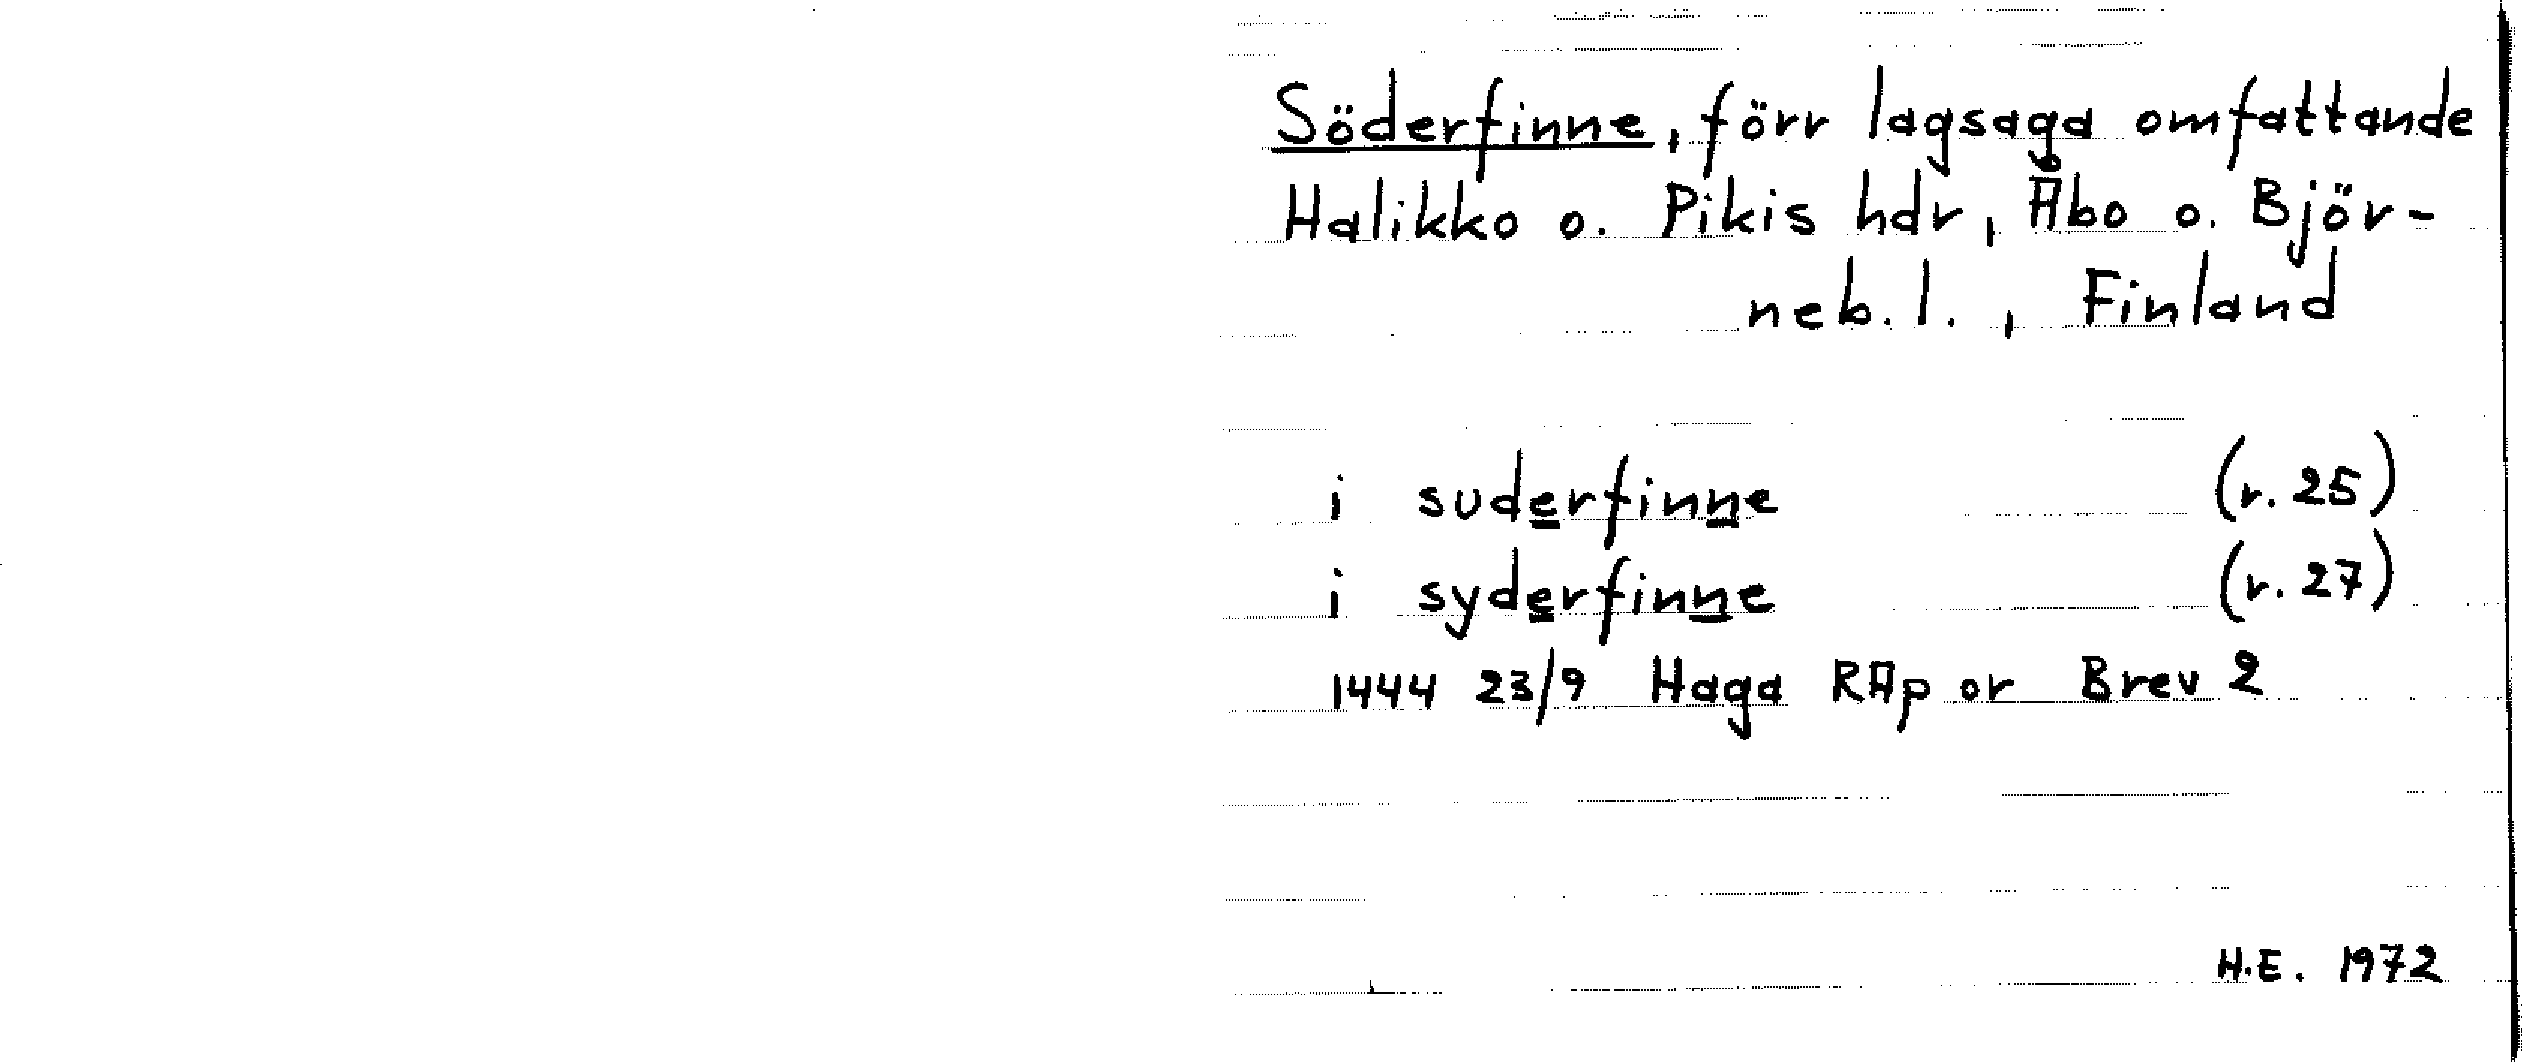 Söderfinne, förr lagsaga omfattande
Halikko o. Pikis hdr, Åbo o. Björ-
neb. l., Finland
i suderfinne (r. 25)
i syderfinne (r. 27)
1444 23/9 Haga RAp or Brev 2
H.E. 1972